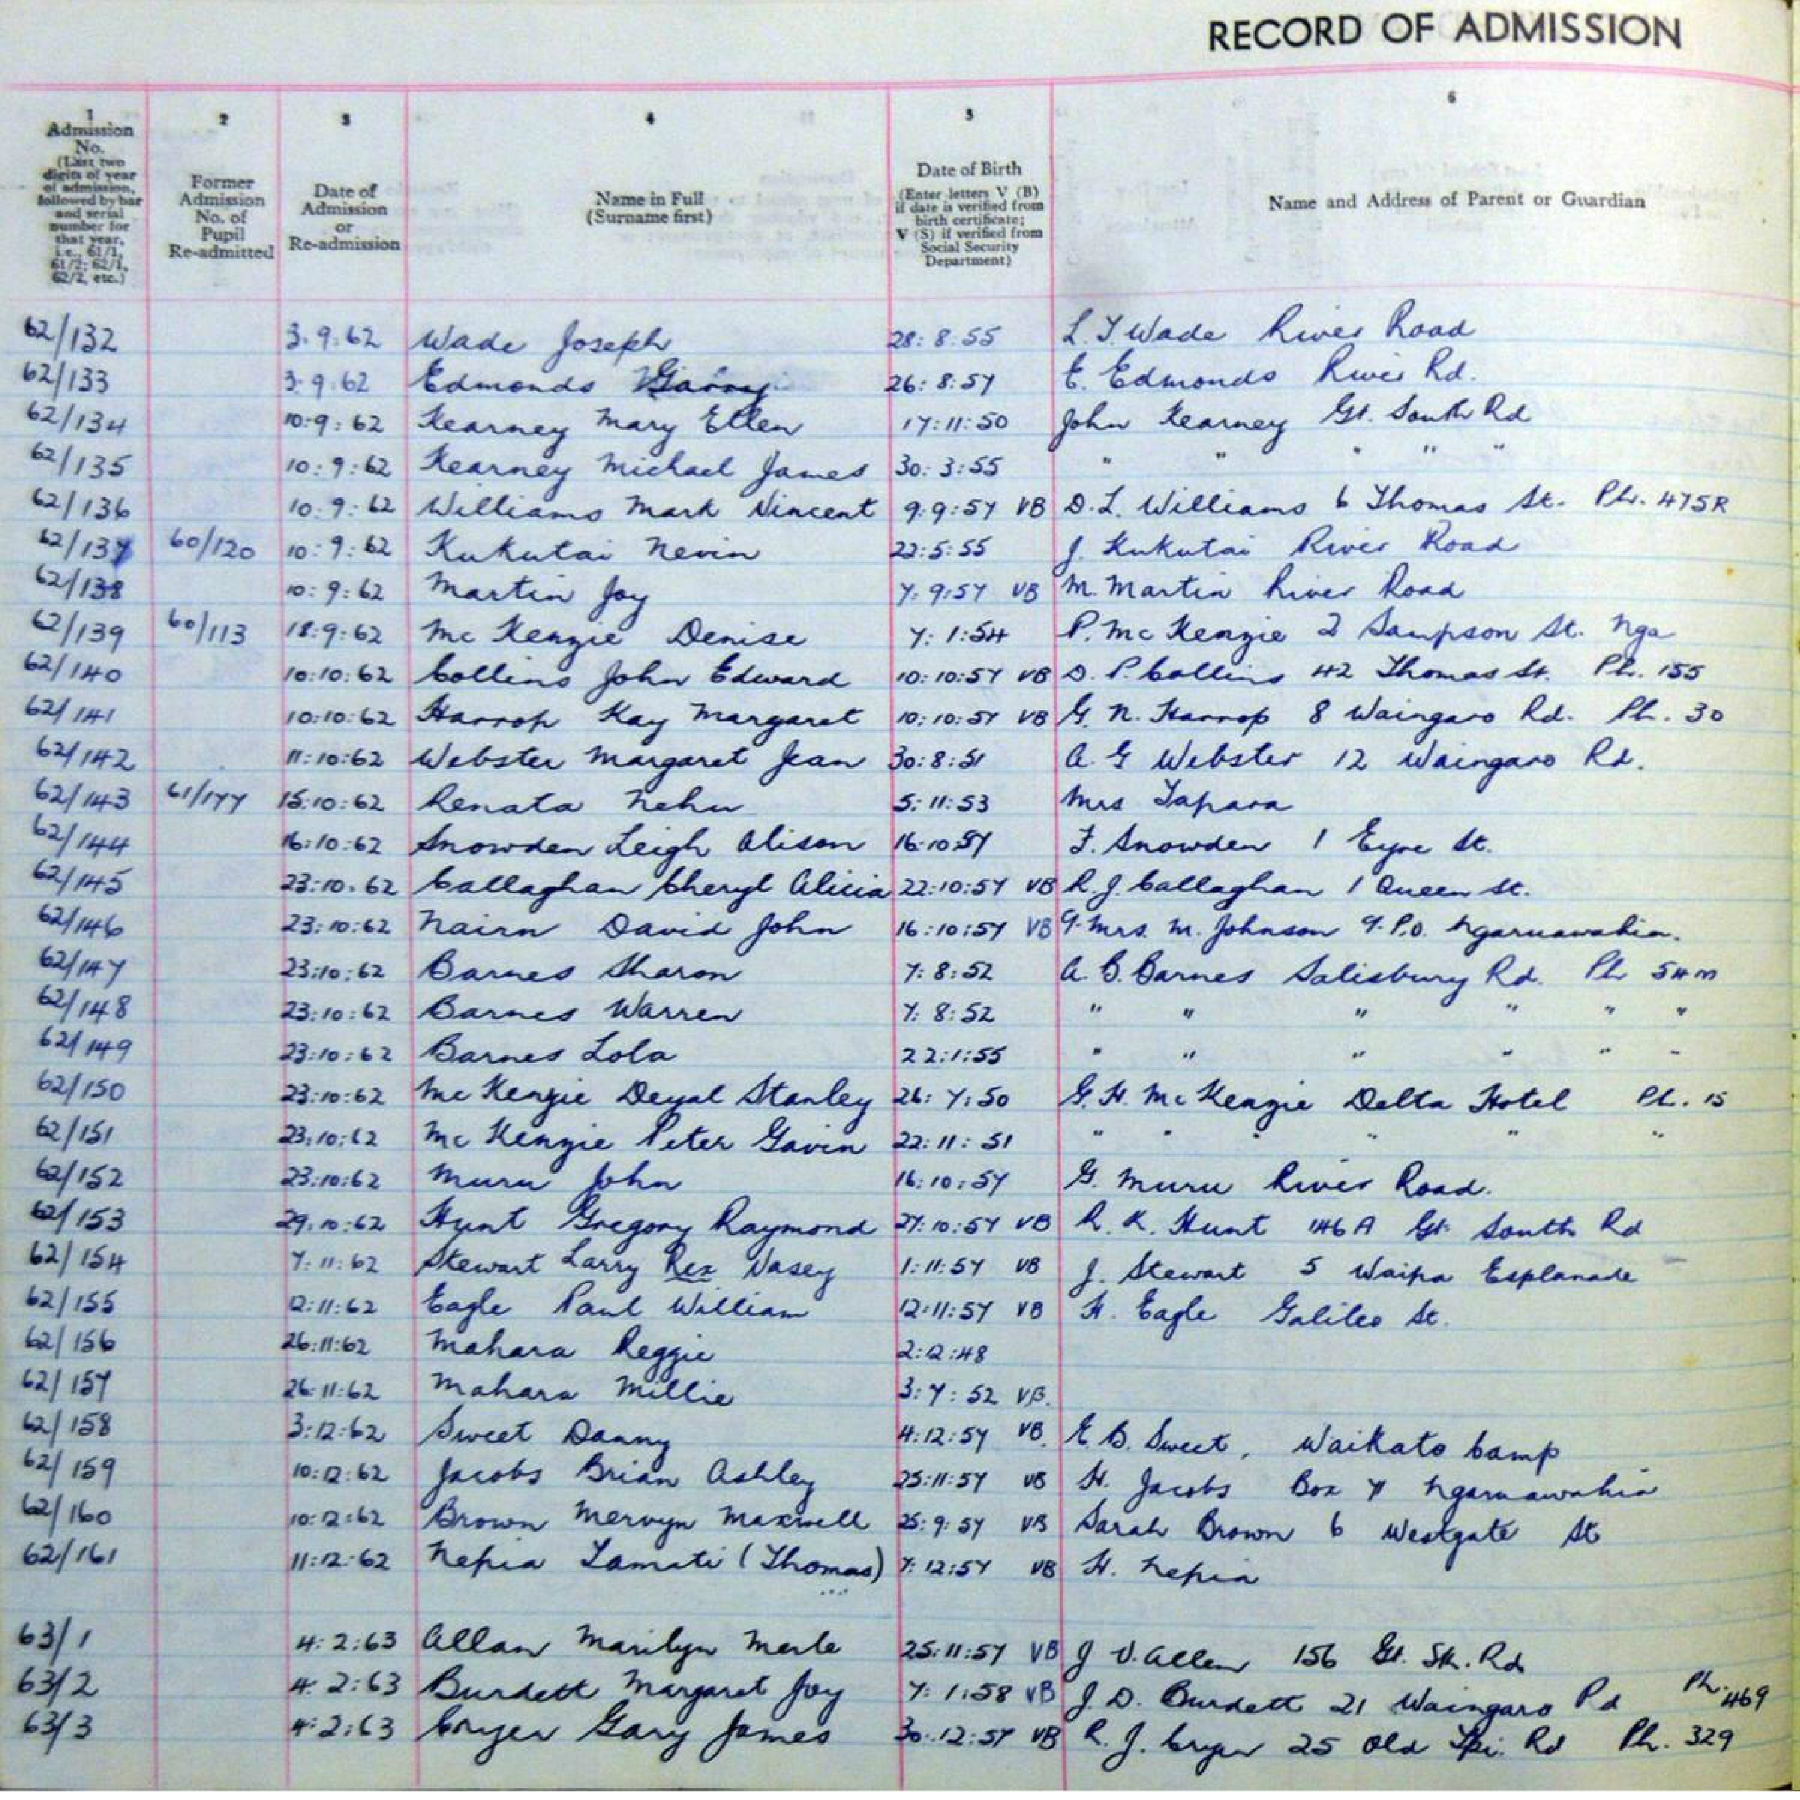 RECORD OF ADMISSION
1 2 3 4 5 6
Admission No. (Last two digits of year of admission, followed by bar and serial number for that year, i.e., 61/1, 61/2; 62/1, 62/2, etc.)
Former Admission No. of Pupil Re-admitted
Date of Admission or Re-admission
Name in Full (Surname first)
Date of Birth (Enter letters V (B) if date is verified from birth certificate; V (S) if verified from Social Security Department)
Name and Address of Parent or Guardian
62/132 3.9.62 Wade Joseph 28:8:55 L. T. Wade River Road
62/133 3.9.62 Edmonds Garry 26:8:57 E. Edmonds River Rd.
62/134 10:9:62 Kearney Mary Ellen 17:11:50 John Kearney Gt. South Rd
62/135 10:9:62 Kearney Michael James 30:3:55 " " " " "
62/136 10:9:62 Williams Mark Vincent 9:9:57 VB D. L. Williams 6 Thomas St. Ph. 475R
62/137 60/120 10:9:62 Kukutai Nevin 22:5:55 J. Kukutai River Road
62/138 10:9:62 Martin Joy 7:9:57 VB M. Martin River Road
62/139 60/113 18:9:62 Mc Kenzie Denise 7:1:54 P. Mc Kenzie 2 Sampson St. Nga
62/140 10:10:62 Collins John Edward 10:10:57 VB D. P. Collins 42 Thomas St. Ph. 155
62/141 10:10:62 Harrop Kay Margaret 10:10:57 VB G. N. Harrop 8 Waingaro Rd. Ph. 30
62/142 11:10:62 Webster Margaret Jean 30:8:51 A. G Webster 12 Waingaro Rd.
62/143 61/177 15:10:62 Renata Nehu 5:11:53 Mrs Tapara
62/144 16:10:62 Snowden Leigh Alison 16:10:57 F. Snowden 1 Eyre St.
62/145 23:10:62 Callaghan Cheryl Alicia 22:10:57 VB R. J. Callaghan 1 Queen St.
62/146 23:10:62 Nairn David John 16:10:57 VB Mrs. M. Johnson P.O. Ngaruawahia.
62/147 23:10:62 Barnes Sharon 7:8:52 A. G. Barnes Salisbury Rd. Ph 54m
62/148 23:10:62 Barnes Warren 7:8:52 " " " " " "
62/149 23:10:62 Barnes Lola 22:1:55 " " " " " "
62/150 23:10:62 Mc Kenzie Stanley 26:7:50 G. H. Mc Kenzie Delta Hotel Ph. 15
62/151 23:10:62 Mc Kenzie Peter Gavin 22:11:51 " " " " " "
62/152 23:10:62 Muru John 16:10:57 G. Muru River Road.
62/153 29:10:62 Hunt Gregory Raymond 27:10:57 VB R. K. Hunt 146A Gt. South Rd
62/154 7:11:62 Stewart Larry Rex Vasey 1:11:57 VB J. Stewart 5 Waipa Esplanade
62/155 12:11:62 Eagle Paul William 12:11:57 VB H. Eagle Galileo St.
62/156 26:11:62 Mahara Reggie 2:12:48
62/157 26:11:62 Mahara Millie 3:7:52 VB.
62/158 3:12:62 Sweet Danny 4:12:57 VB. E B. Sweet, Waikato Camp
62/159 10:12:62 Jacobs Brian Ashley 25:11:57 VB H. Jacobs Box 7 Ngaruawahia
62/160 10:12:62 Brown Mervyn Maxwell 25:9:57 VB Sarah Brown 6 Westgate St
62/161 11:12:62 Nepia Tamati (Thomas) 7:12:57 VB H. Nepia
63/1 4:2:63 Allan Marilyn Merle 25:11:57 VB J V. Allen 156 Gt. Sth. Rd
63/2 4:2:63 Burdett Margaret Joy 7:1:58 VB J. D. Burdett 21 Waingaro Rd Ph. 469
63/3 4:2:63 Cryer Gary James 30:12:57 VB R. J. Cryer 25 Old Tpi. Rd Ph. 329